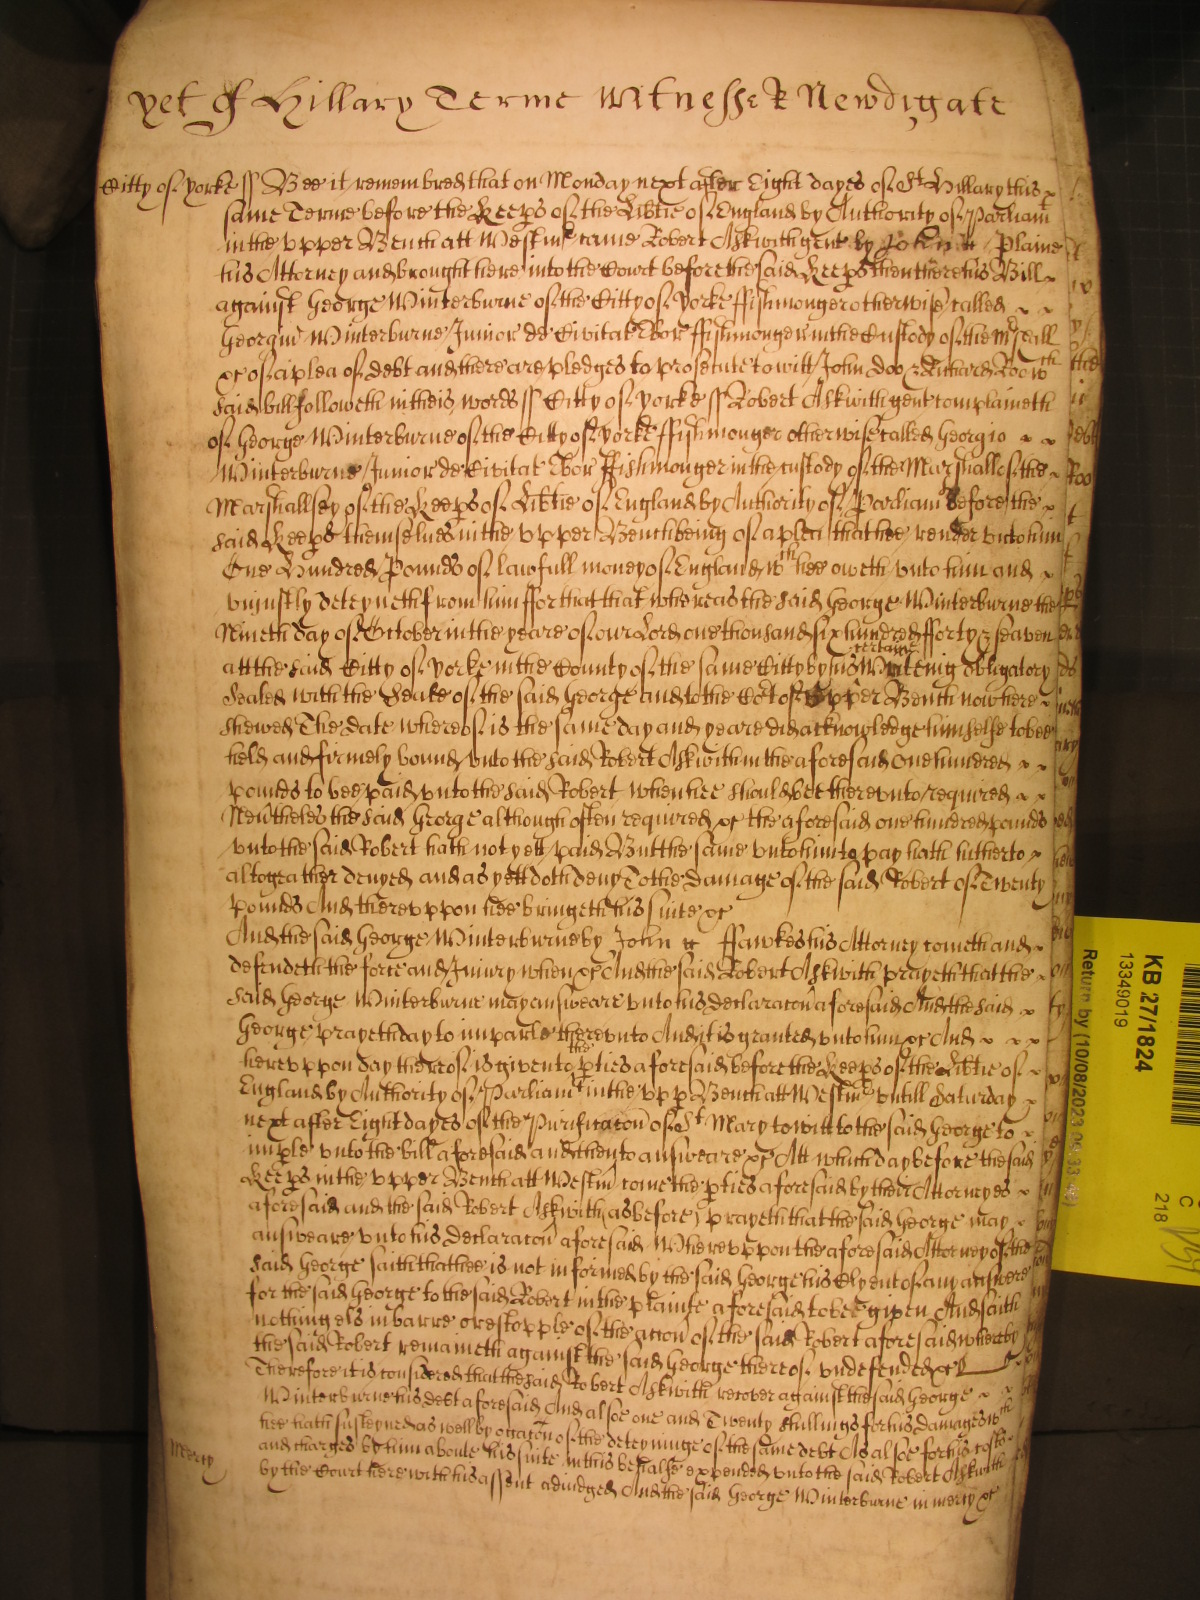 yet of Hillary Terme Witnesse R Newdigate
Citty of Yorke ss Bee it remembred that on Monday next after Eight dayes of St Hillary this x
same Terme before the Keeps of the Libtie of England by Authority of Parliamt
in the vpper Bench att Westmr came Robert Askwith gent by John Plaine
his Attorney and brought here into the Court before the said Keeps then there his Bill x
against George Winterburne of the Citty of Yorke ffishmonger otherwise called x x
Georgiu Winterburne Junior de Civitat Ebor ffishmonger in the Custody of the Mrshall
xc of a plea of debt and there are pledges to prosecute to witt John Doo & Richard Roo wch
said bill followeth in theis words ss Citty of Yorke ss Robert Askwith gent complaineth
of George Winterburne of the Citty of Yorke ffishmonger otherwise called Georgio x x
Winterburne Junior de Civitat Ebor ffishmonger in the custody of the Marshall of the x
Marshallsey of the Keeps of Libtie of England by Authority of Parliamt before the x
said Keeps themselues in the vpper Bench being of a plea that hee render vnto him
One Hundred Pounds of lawfull money of England wch hee oweth vnto him and x
vniustly deteyneth from him ffor that that whereas the said George Winterburne the
Nineth day of October in the yeare of our Lord one thousand six hundred fforty & seaven
att the said Citty of Yorke in the County of the same Citty by his certaine Writeing obligatory
Sealed with the Seale of the said George and to the Cort of vpper Bench now here x
shewed The date whereof is the same day and yeare did acknowledge himselfe to bee
held and firmely bound vnto the said Robert Askwith in the aforesaid one hundred x x
pounds to bee paid vnto the said Robert when hee should bee therevnto required x x
Neutheles the said George although often required xc the aforesaid one hundred pounds
vnto the said Robert hath not yett paid But the same vnto him to pay hath hitherto x
altogeather denyed and as yett doth deny To the damage of the said Robert of Twenty
pounds And therevppon hee bringeth his suite xc
And the said George Winterburne by John ffawkes his Attorney cometh and x
defendeth the force and Iniury when xc And the said Robert Askwith prayeth that the x
said George Winterburne may answeare vnto his declaracon aforesaid And the said x
George prayeth day to imparle therevnto And it is granted vnto him xc And x x x
herevppon day thereof is given to the pties aforesaid before the Keeps of the Libtie of x
England by Authority of Parliamt in the vpp Bench att Westmr vntill Saturday x
next after Eight dayes of the Purificacon of St Mary to witt to the said George to x
imple vnto the bill aforesaid and then to answeare xc Att which day before the said
Keeps in the vpper Bench att Westmr come the pties aforesaid by their Attorneyes x
aforesaid and the said Robert Askwith (as before) prayeth that the said George may x
answeare vnto his declaracon aforesaid Wherevppon the aforesaid Attorney of the
said George saith that hee is not informed by the said George his Clyent of any answere
for the said George to the said Robert in the plainte aforesaid to bee given And saith
nothing els in barre or estopple of the accon of the said Robert aforesaid whereby
the said Robert remaineth against the said George thereof vndefended xc
Therefore it is considered that the said Robert Askwith recover against the said George x x
Winterburne his debt aforesaid And alsoe one and Twenty shillings for his damages wch
hee hath susteyned as well by occacon of the deteyninge of the same debt As alsoe for his costs
and charges by him aboute his suite in this behalfe expended vnto the said Robert Askwith
Mercy by the Court here with his assent adiudged And the said George Winterburne in mercy xc
KB 27/1824
13349019
Return by (10/08/2023
C
218